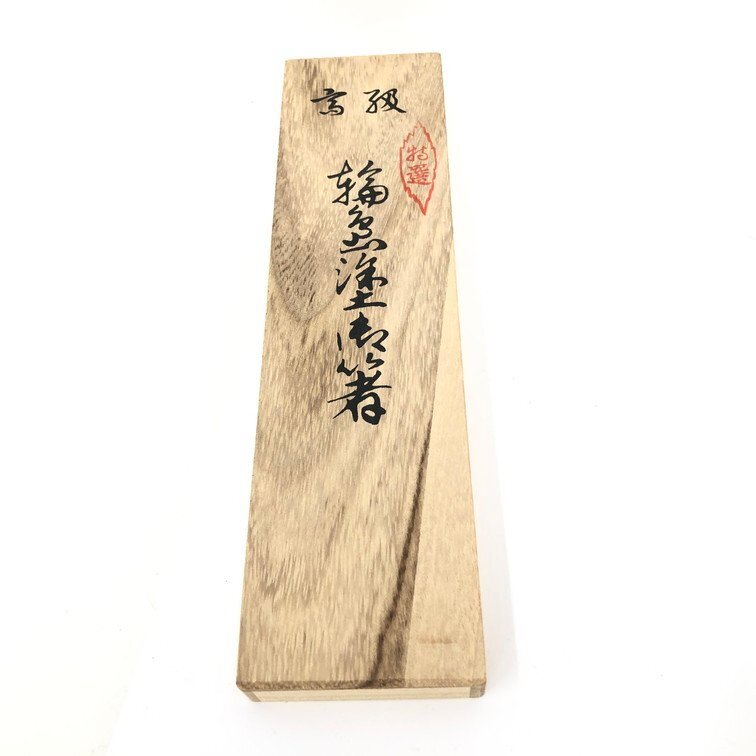 高級
特選
輪島塗御箸